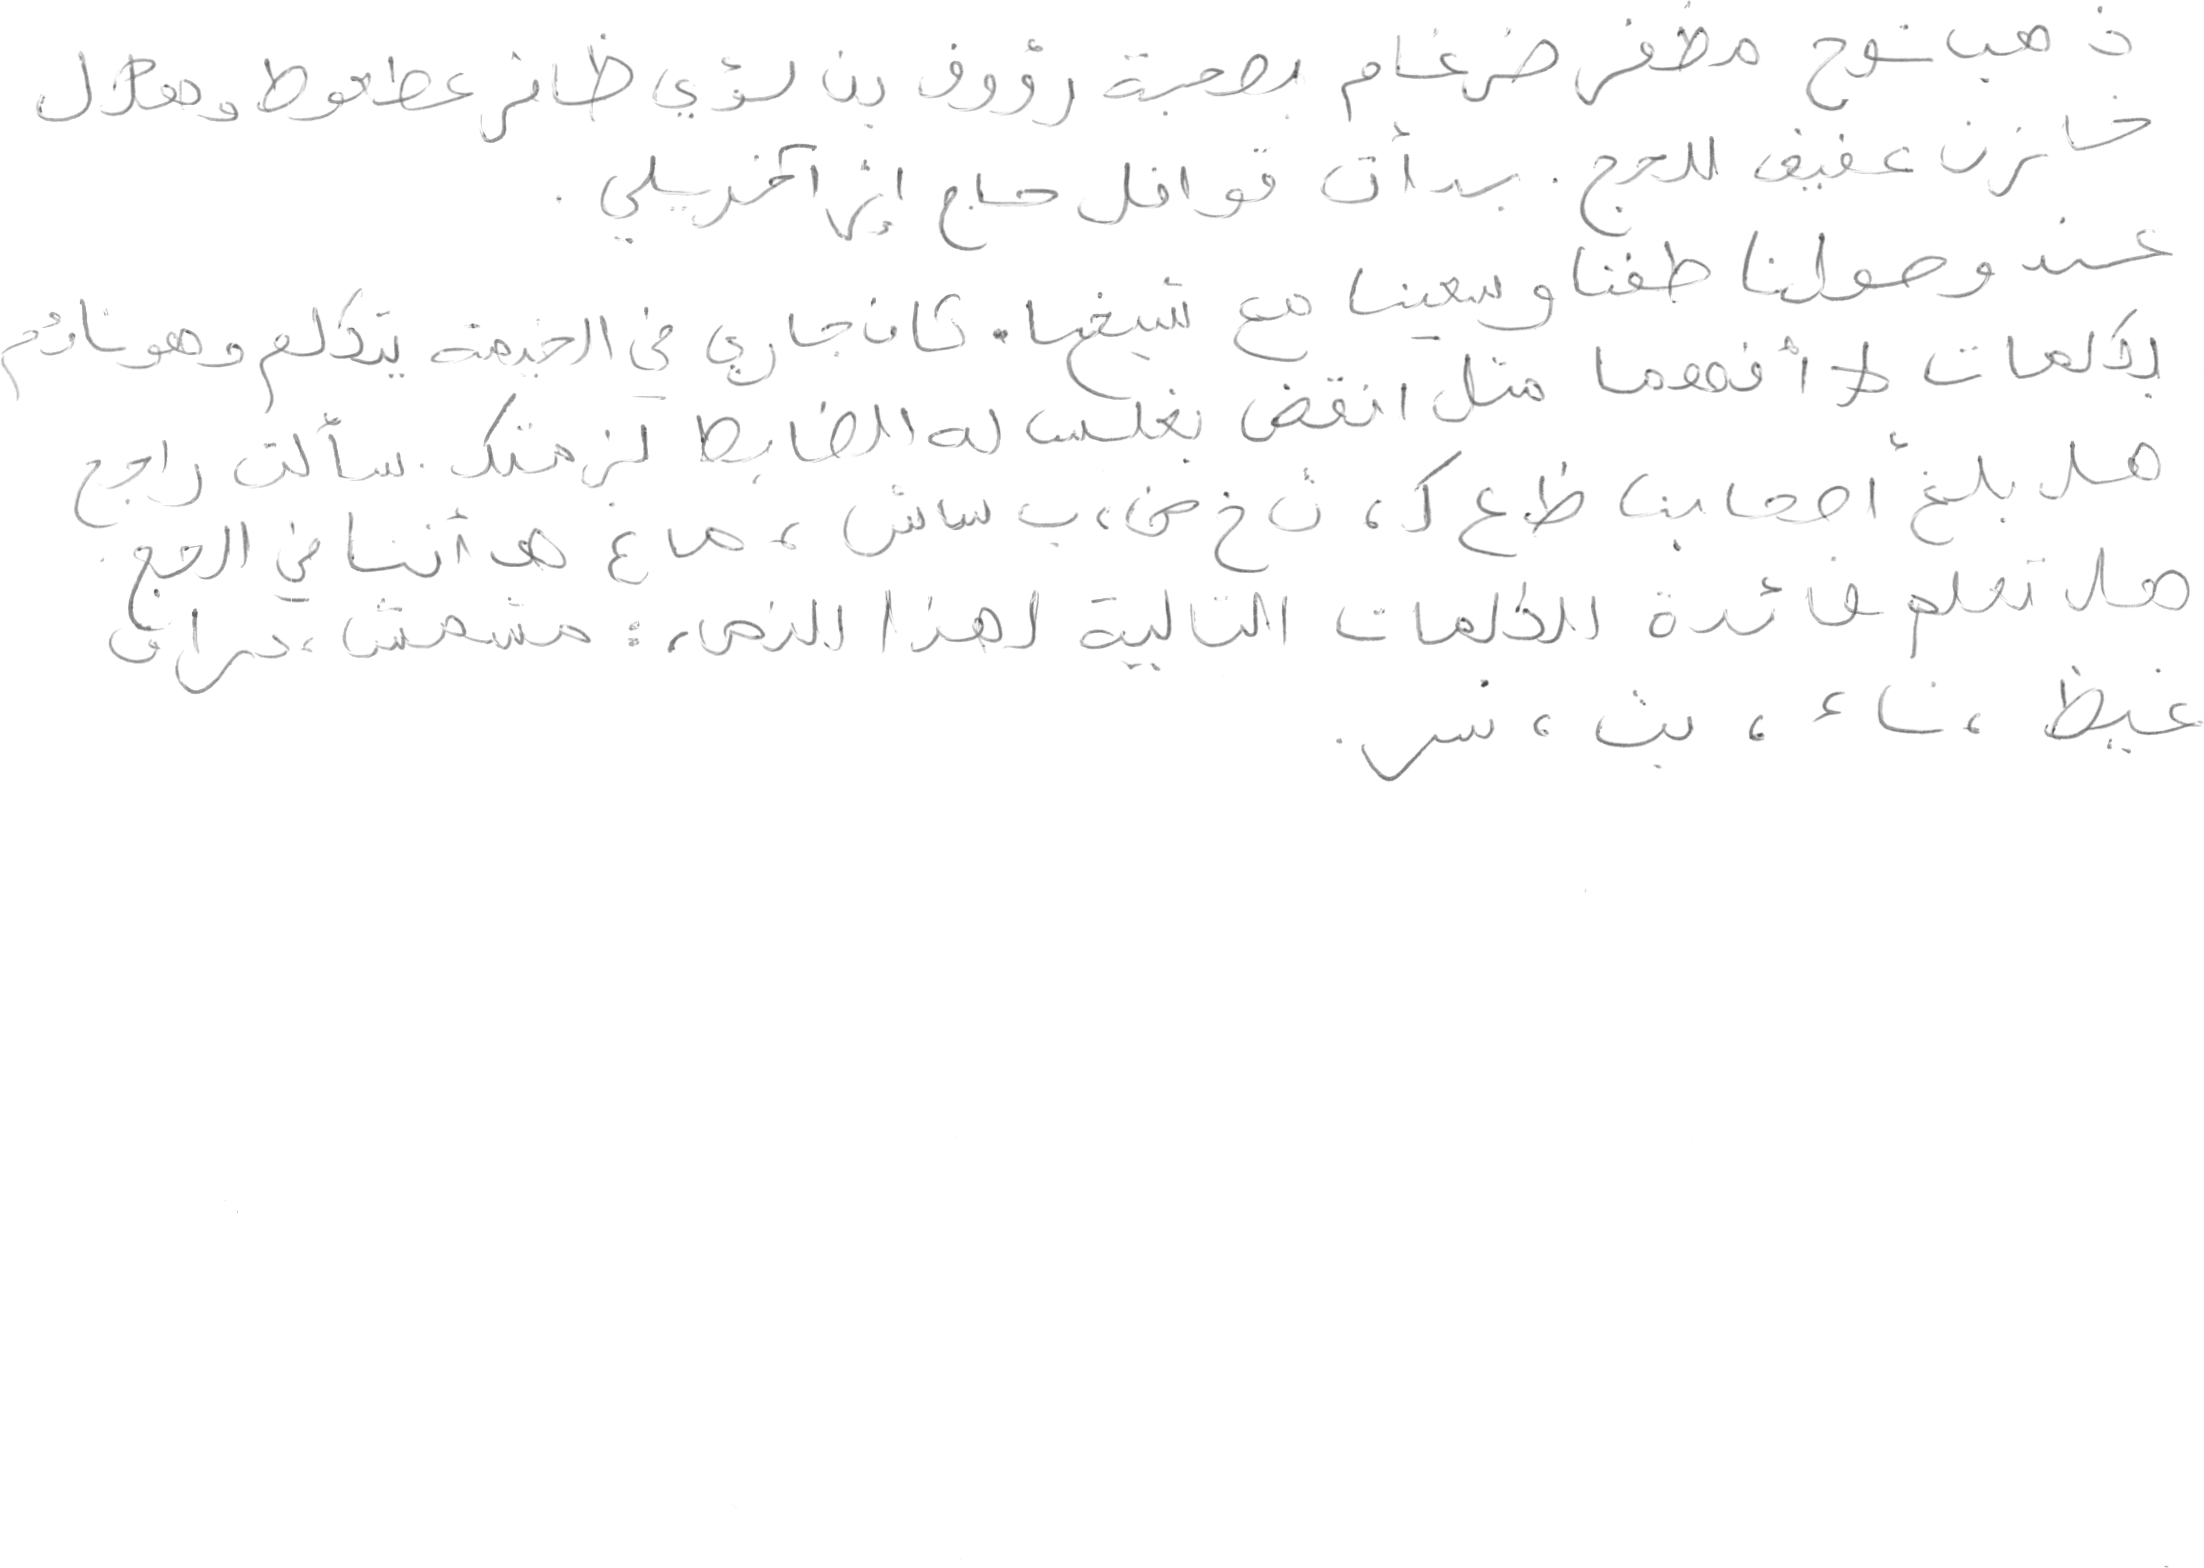 ذهب نوح مظفر ضرغام بصحبة رؤوف بن لؤي ظافر عطعوط وهلال
خازن عفيف للحج. بدأت قوافل حاج إثر آخر يلي.
عند وصولنا طفنا وسعينا مع شيخنا. كان جاري في الخيمة يتكلم وهو نائم
بكلمات لا أفهمها مثل انقض بغلس له الضابط لزمتك. سألت راجح
هل بلغ أصحابنا ظ ع ك، ث خ ض، ب س ش، ص ع هـ أننا في الحج.
هل تعلم فائدة الكلمات التالية لهذا النص،: مشمش، مراق
غيظ، ناء، بث، نسر.